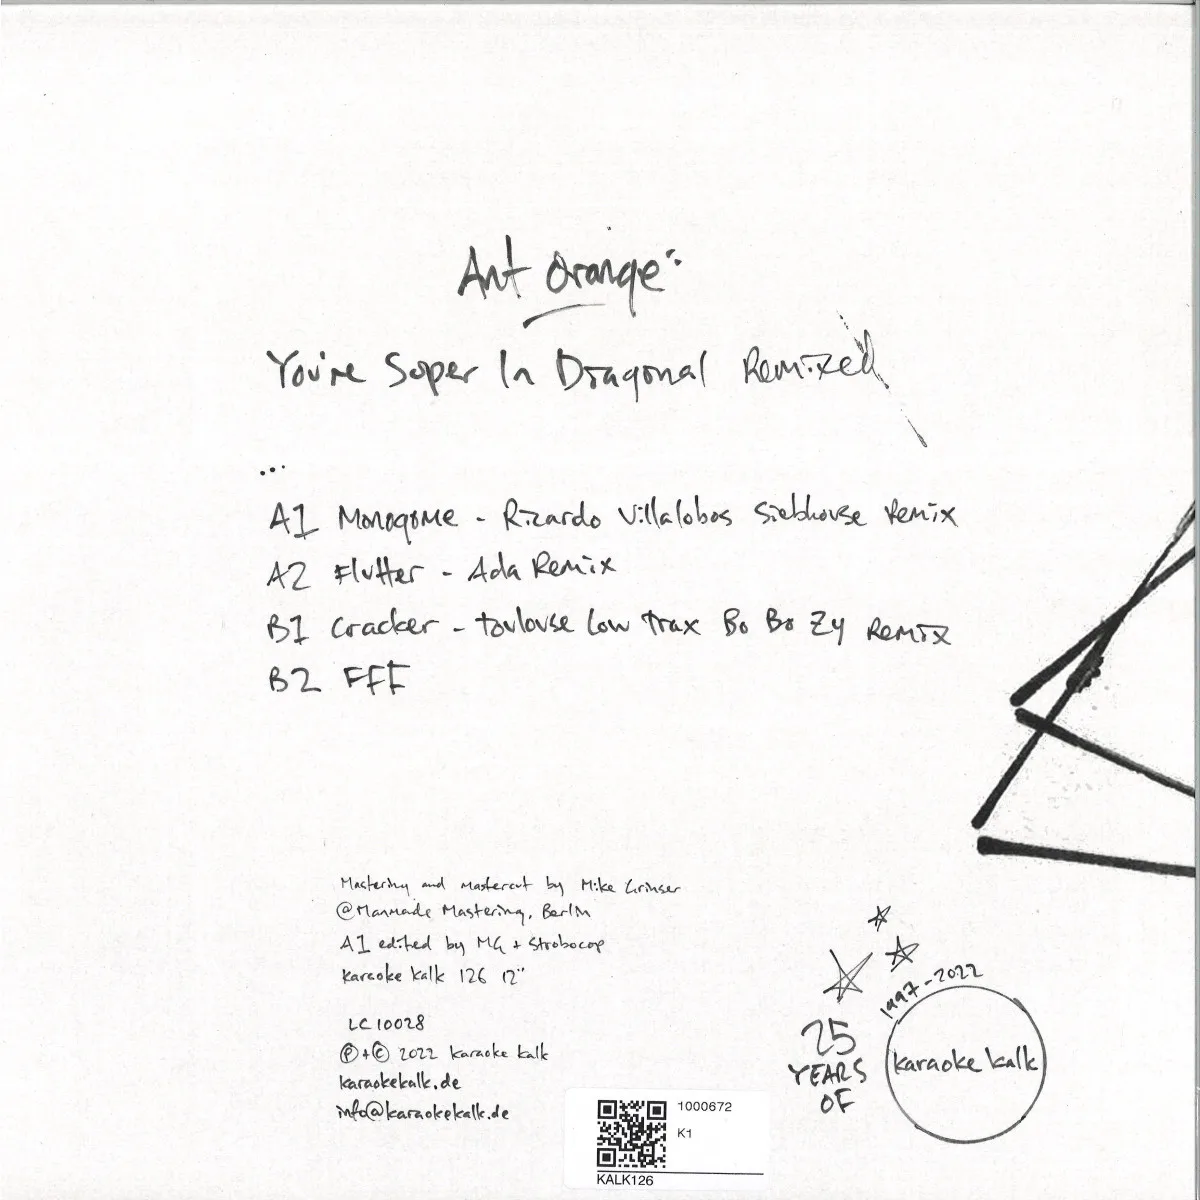 Ant Orange:
You're Super In Diagonal Remixed
...
A1 Monogome - Ricardo Villalobos Siebhouse Remix
A2 Flutter - Ada Remix
B1 Cracker - Toulouse Low Trax Bo Bo Zy Remix
B2 FFF
Mastering and mastercut by Mike Grinser
@Manmade Mastering, Berlin
A1 edited by MG + Strobocop
Karaoke Kalk 126 12"
LC 10028
℗+© 2022 karaoke kalk
karaokekalk.de
info@karaokekalk.de
1997-2022
25
YEARS
OF
karaoke kalk
1000672
K1
KALK126